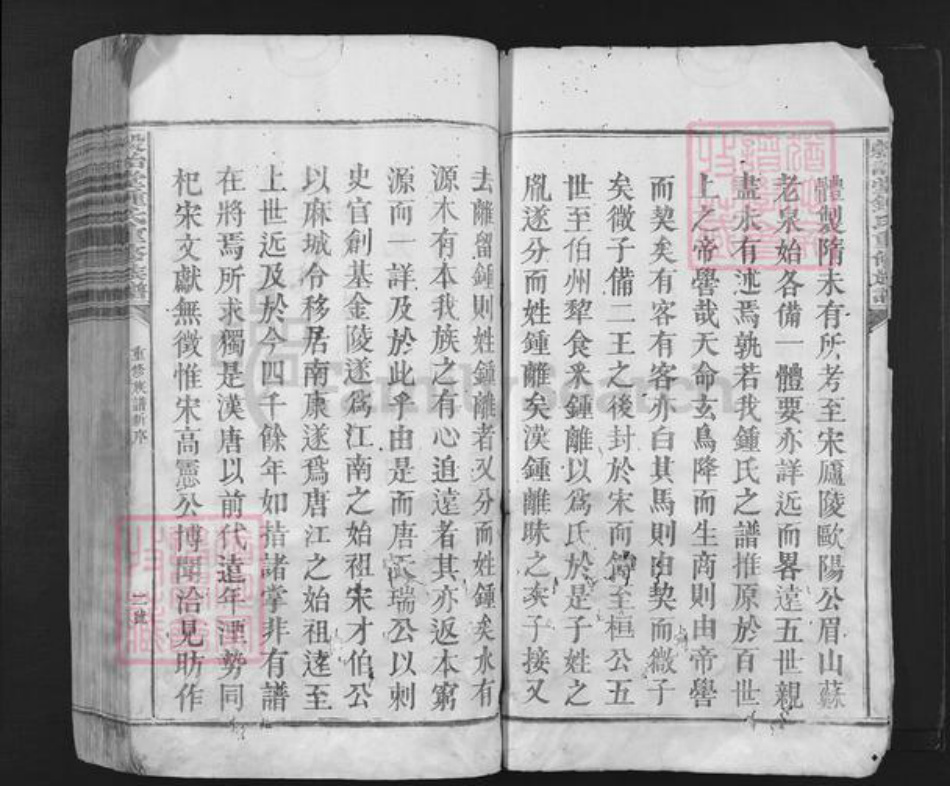 體製隋未有所考至宋廬陵歐陽公眉山蘇
老泉始各備一體要亦詳近而畧遠五世親
盡未有述焉孰若我鍾氏之譜推原於百世
上之帝嚳哉天命玄鳥降而生商則由帝嚳
而契矣有客有客亦白其馬則由契而微子
矣微子備二王之後封於宋而傳至桓公五
世至伯州犂食釆鍾離以為氏於是子姓之
胤遂分而姓鍾離矣漢鍾離昧之次子接又
去離留鍾則姓鍾離者又分而姓鍾矣水有
源木有本我族之有心追遠者其亦返本窮
源而一詳及於此乎由是而唐瑞公以刺
史官創基金陵遂為江南之始祖宋才伯公
以麻城令移居南康遂爲唐江之始祖逹至
上世近及於今四千餘年如指諸掌非有譜
在將焉所求獨是漢唐以前代遠年湮勢同
杞宋文獻無徵惟宋高公博聞洽見昉作
重修族譜新序
二號
FamilySearch